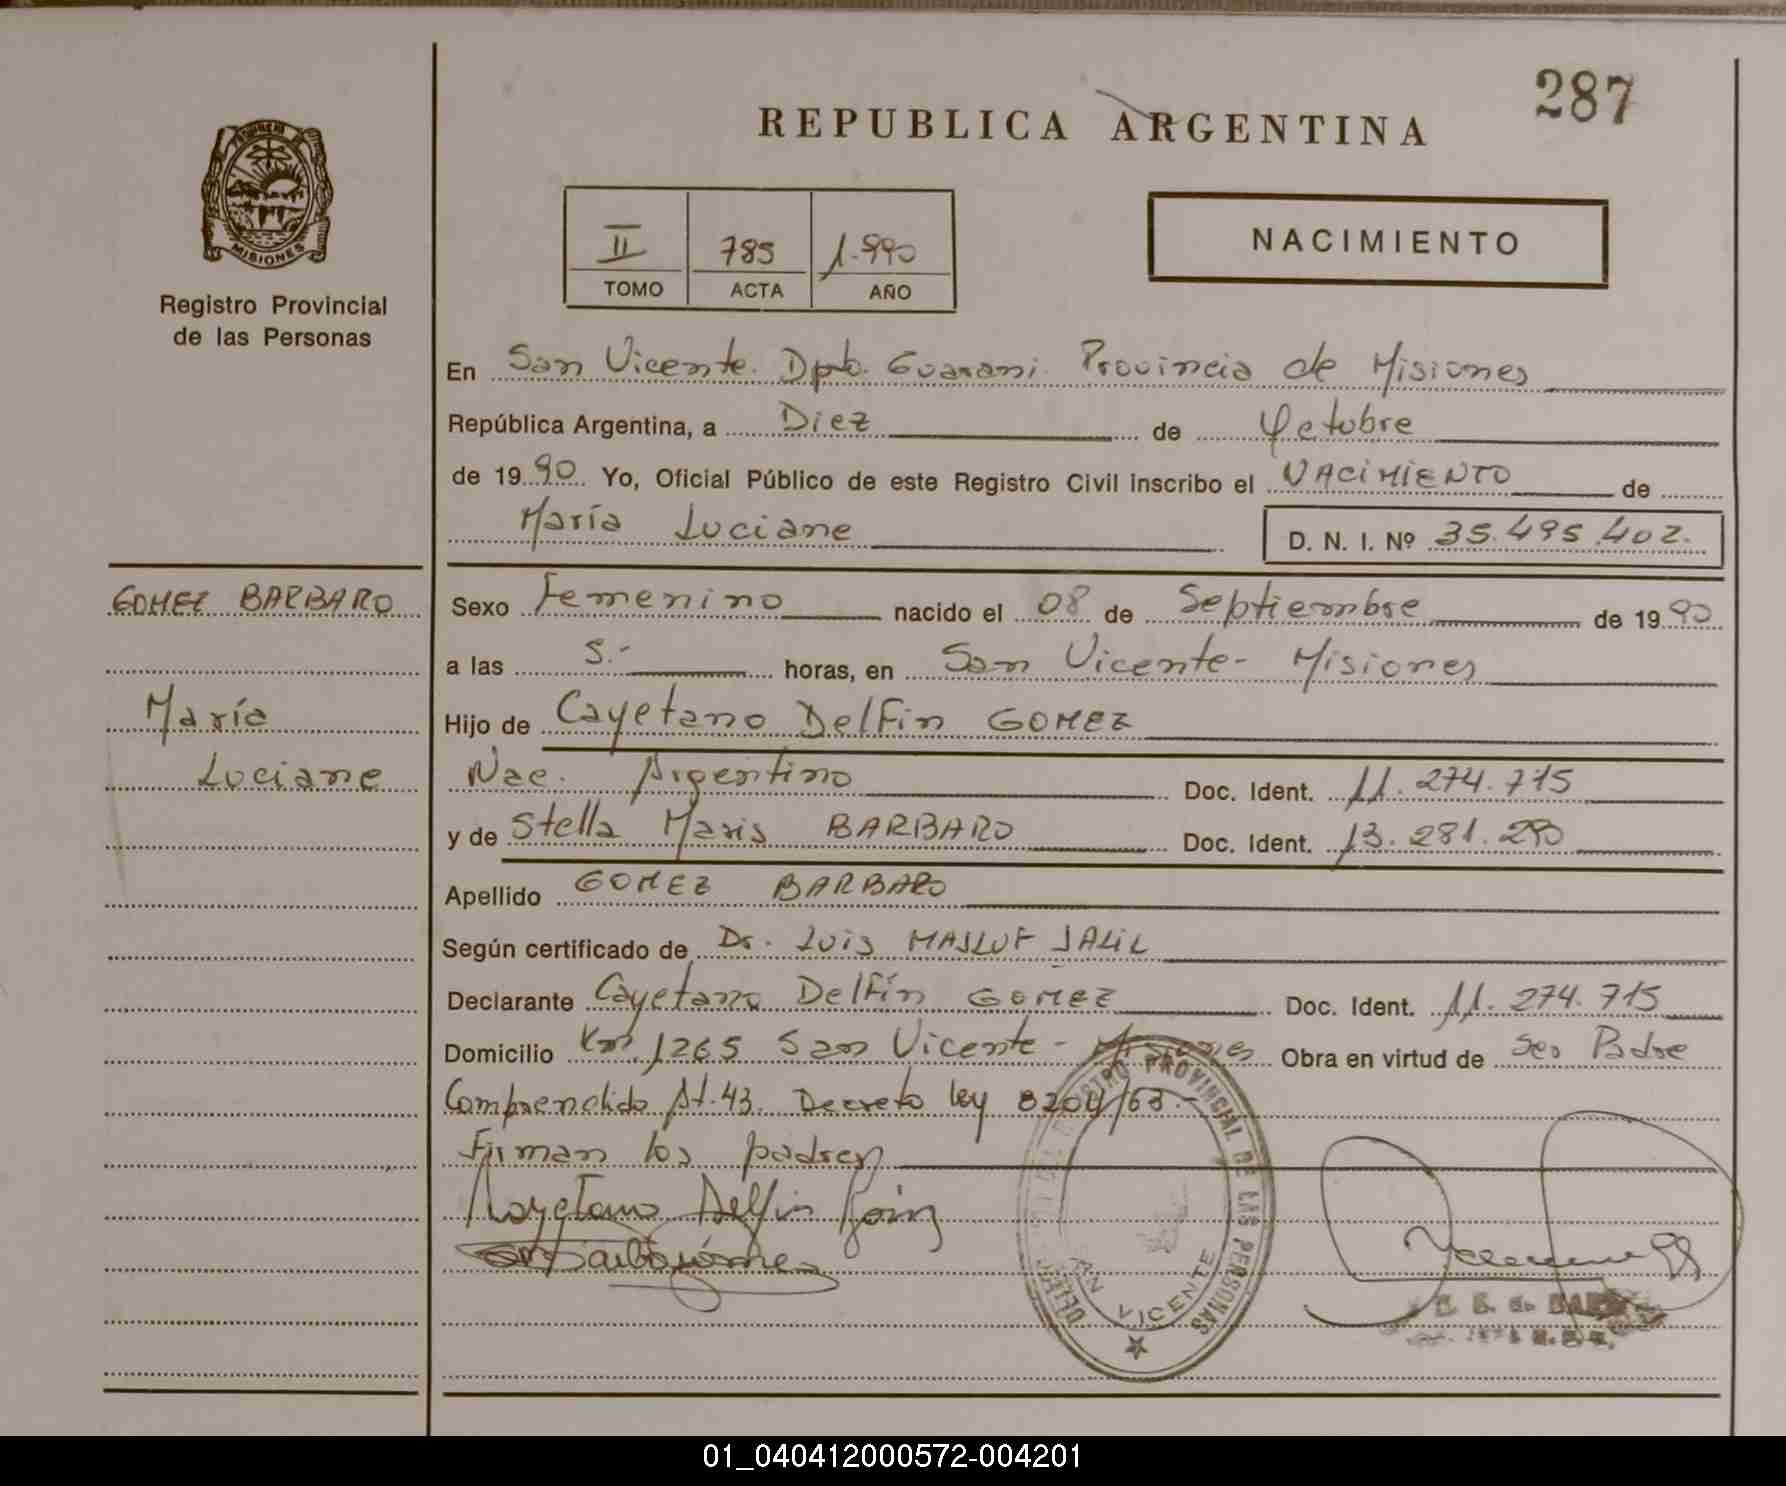 287
REPUBLICA ARGENTINA
MISIONES
Registro Provincial
de las Personas
II 785 1.990
TOMO ACTA AÑO
NACIMIENTO
En San Vicente. Dpto. Guarani. Provincia de Misiones
República Argentina, a Diez de Octubre
de 1990 Yo, Oficial Público de este Registro Civil inscribo el NACIMIENTO de
María Luciane D. N. I. Nº 35.495.402.
GOMEZ BARBARO
María
Luciane
Sexo Femenino nacido el 08 de Septiembre de 1990
a las 5.- horas, en San Vicente- Misiones
Hijo de Cayetano Delfin GOMEZ
Nac. Argentino Doc. Ident. 11.274.715
y de Stella Maris BARBARO Doc. Ident. 13.281.290
Apellido GOMEZ BARBARO
Según certificado de Dr. Luis MASLUF JALIL
Declarante Cayetano Delfín GOMEZ Doc. Ident. 11.274.715
Domicilio Km. 1265 San Vicente - Misiones Obra en virtud de ser Padre
Comprendido At.43. Decreto ley 8204/63.-
Firman los padres
Cayetano Delfin
REGISTRO PROVINCIAL DE LAS PERSONAS
SAN VICENTE
01_040412000572-004201